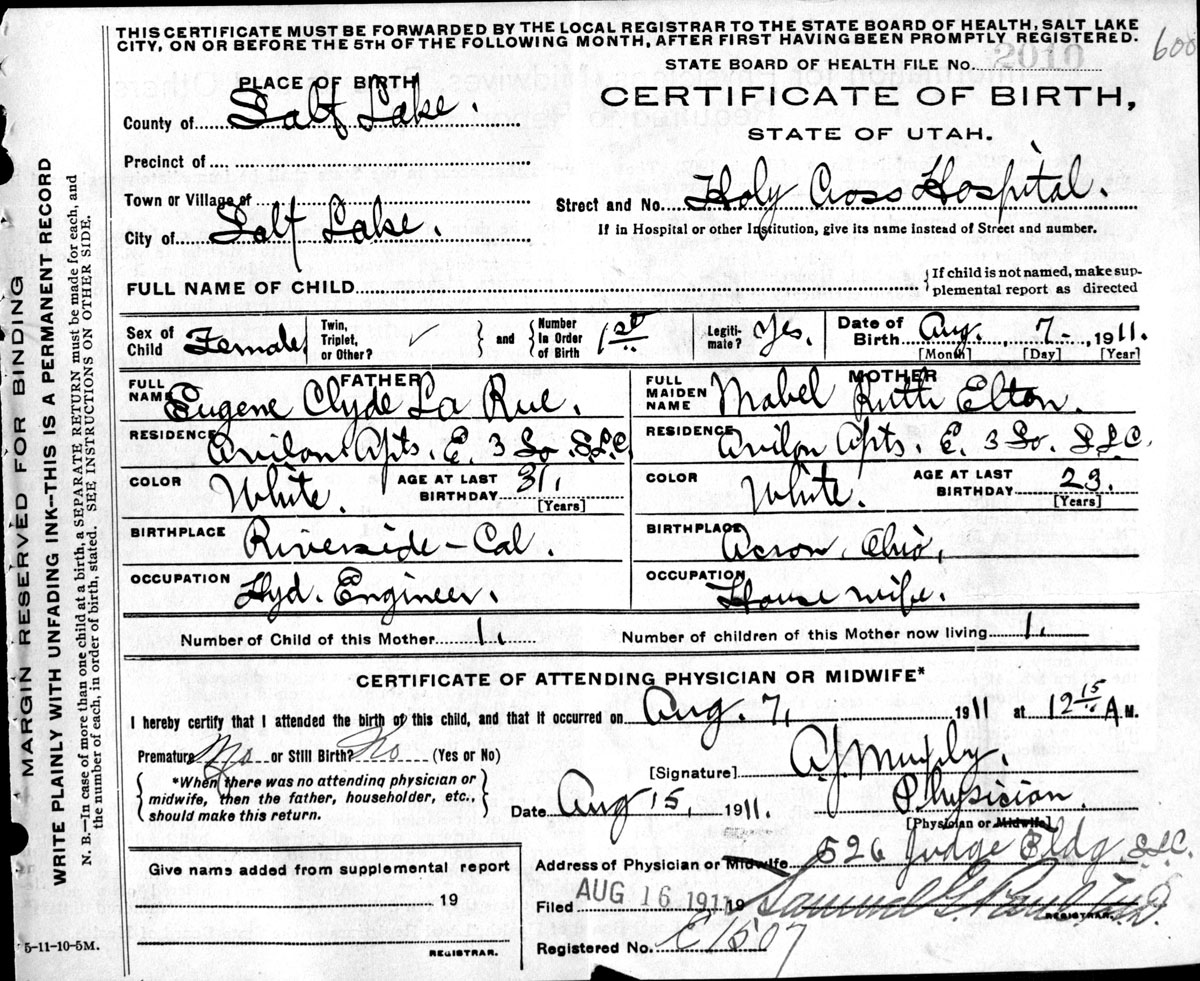 THIS CERTIFICATE MUST BE FORWARDED BY THE LOCAL REGISTRAR TO THE STATE BOARD OF HEALTH, SALT LAKE
CITY, ON OR BEFORE THE 5TH OF THE FOLLOWING MONTH, AFTER FIRST HAVING BEEN PROMPTLY REGISTERED.
600
STATE BOARD OF HEALTH FILE No. 2010
PLACE OF BIRTH
CERTIFICATE OF BIRTH,
STATE OF UTAH.
County of Salt Lake.
Precinct of
Town or Village of
Street and No. Holy Cross Hospital.
City of Salt Lake.
If in Hospital or other Institution, give its name instead of Street and number.
FULL NAME OF CHILD
If child is not named, make sup-
plemental report as directed
Sex of Child Female
Twin, Triplet, or Other? ✓ and Number In Order of Birth 1st
Legiti-mate? Yes.
Date of Birth Aug. 7, 1911.
[Month] [Day] [Year]
FATHER
FULL NAME Eugene Clyde La Rue.
RESIDENCE Avilon Apts. E. 3 So. S.L.C.
COLOR White. AGE AT LAST BIRTHDAY 31, [Years]
BIRTHPLACE Riverside - Cal.
OCCUPATION Hyd. Engineer.
MOTHER
FULL MAIDEN NAME Mabel Ruth Elton.
RESIDENCE Avilon Apts. E. 3 So. S.L.C.
COLOR White. AGE AT LAST BIRTHDAY 23. [Years]
BIRTHPLACE Acron, Ohio,
OCCUPATION House wife.
Number of Child of this Mother 1. Number of children of this Mother now living 1.
CERTIFICATE OF ATTENDING PHYSICIAN OR MIDWIFE*
I hereby certify that I attended the birth of this child, and that it occurred on Aug. 7, 1911 at 12 15 A M.
Premature No or Still Birth? No (Yes or No)
*When there was no attending physician or
midwife, then the father, householder, etc.,
should make this return.
[Signature] A.J. Murphy.
Date Aug 15, 1911. Physician.
[Physician or Midwife]
Address of Physician or Midwife 526 Judge Bldg S.L.C.
Give name added from supplemental report
19
REGISTRAR.
Filed AUG 16 1911 19 Samuel G. Paul
REGISTRAR.
Registered No. E1507
5-11-10-5M.
MARGIN RESERVED FOR BINDING
WRITE PLAINLY WITH UNFADING INK—THIS IS A PERMANENT RECORD
N. B.—In case of more than one child at a birth, a SEPARATE RETURN must be made for each, and
the number of each, in order of birth, stated. SEE INSTRUCTIONS ON OTHER SIDE.